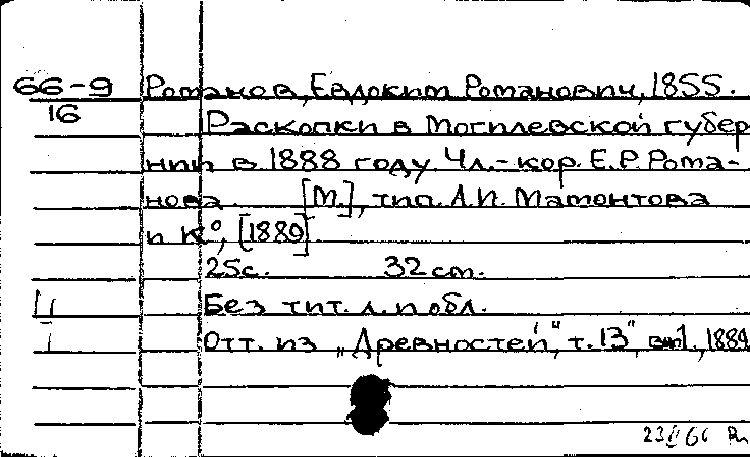 66-9 Романов, Евдоким Романович, 1855.
16
Раскопки в Могилевской губер
нии в 1888 году Чл.-кор. Е.Р. Рома-
нова. [М.], тип. А.И. Мамонтова
и К°, [1889].
25с. 32 cm.
Без тит. л. и обл.
Отт. из „Древностей", т. 13", вып1., 1889